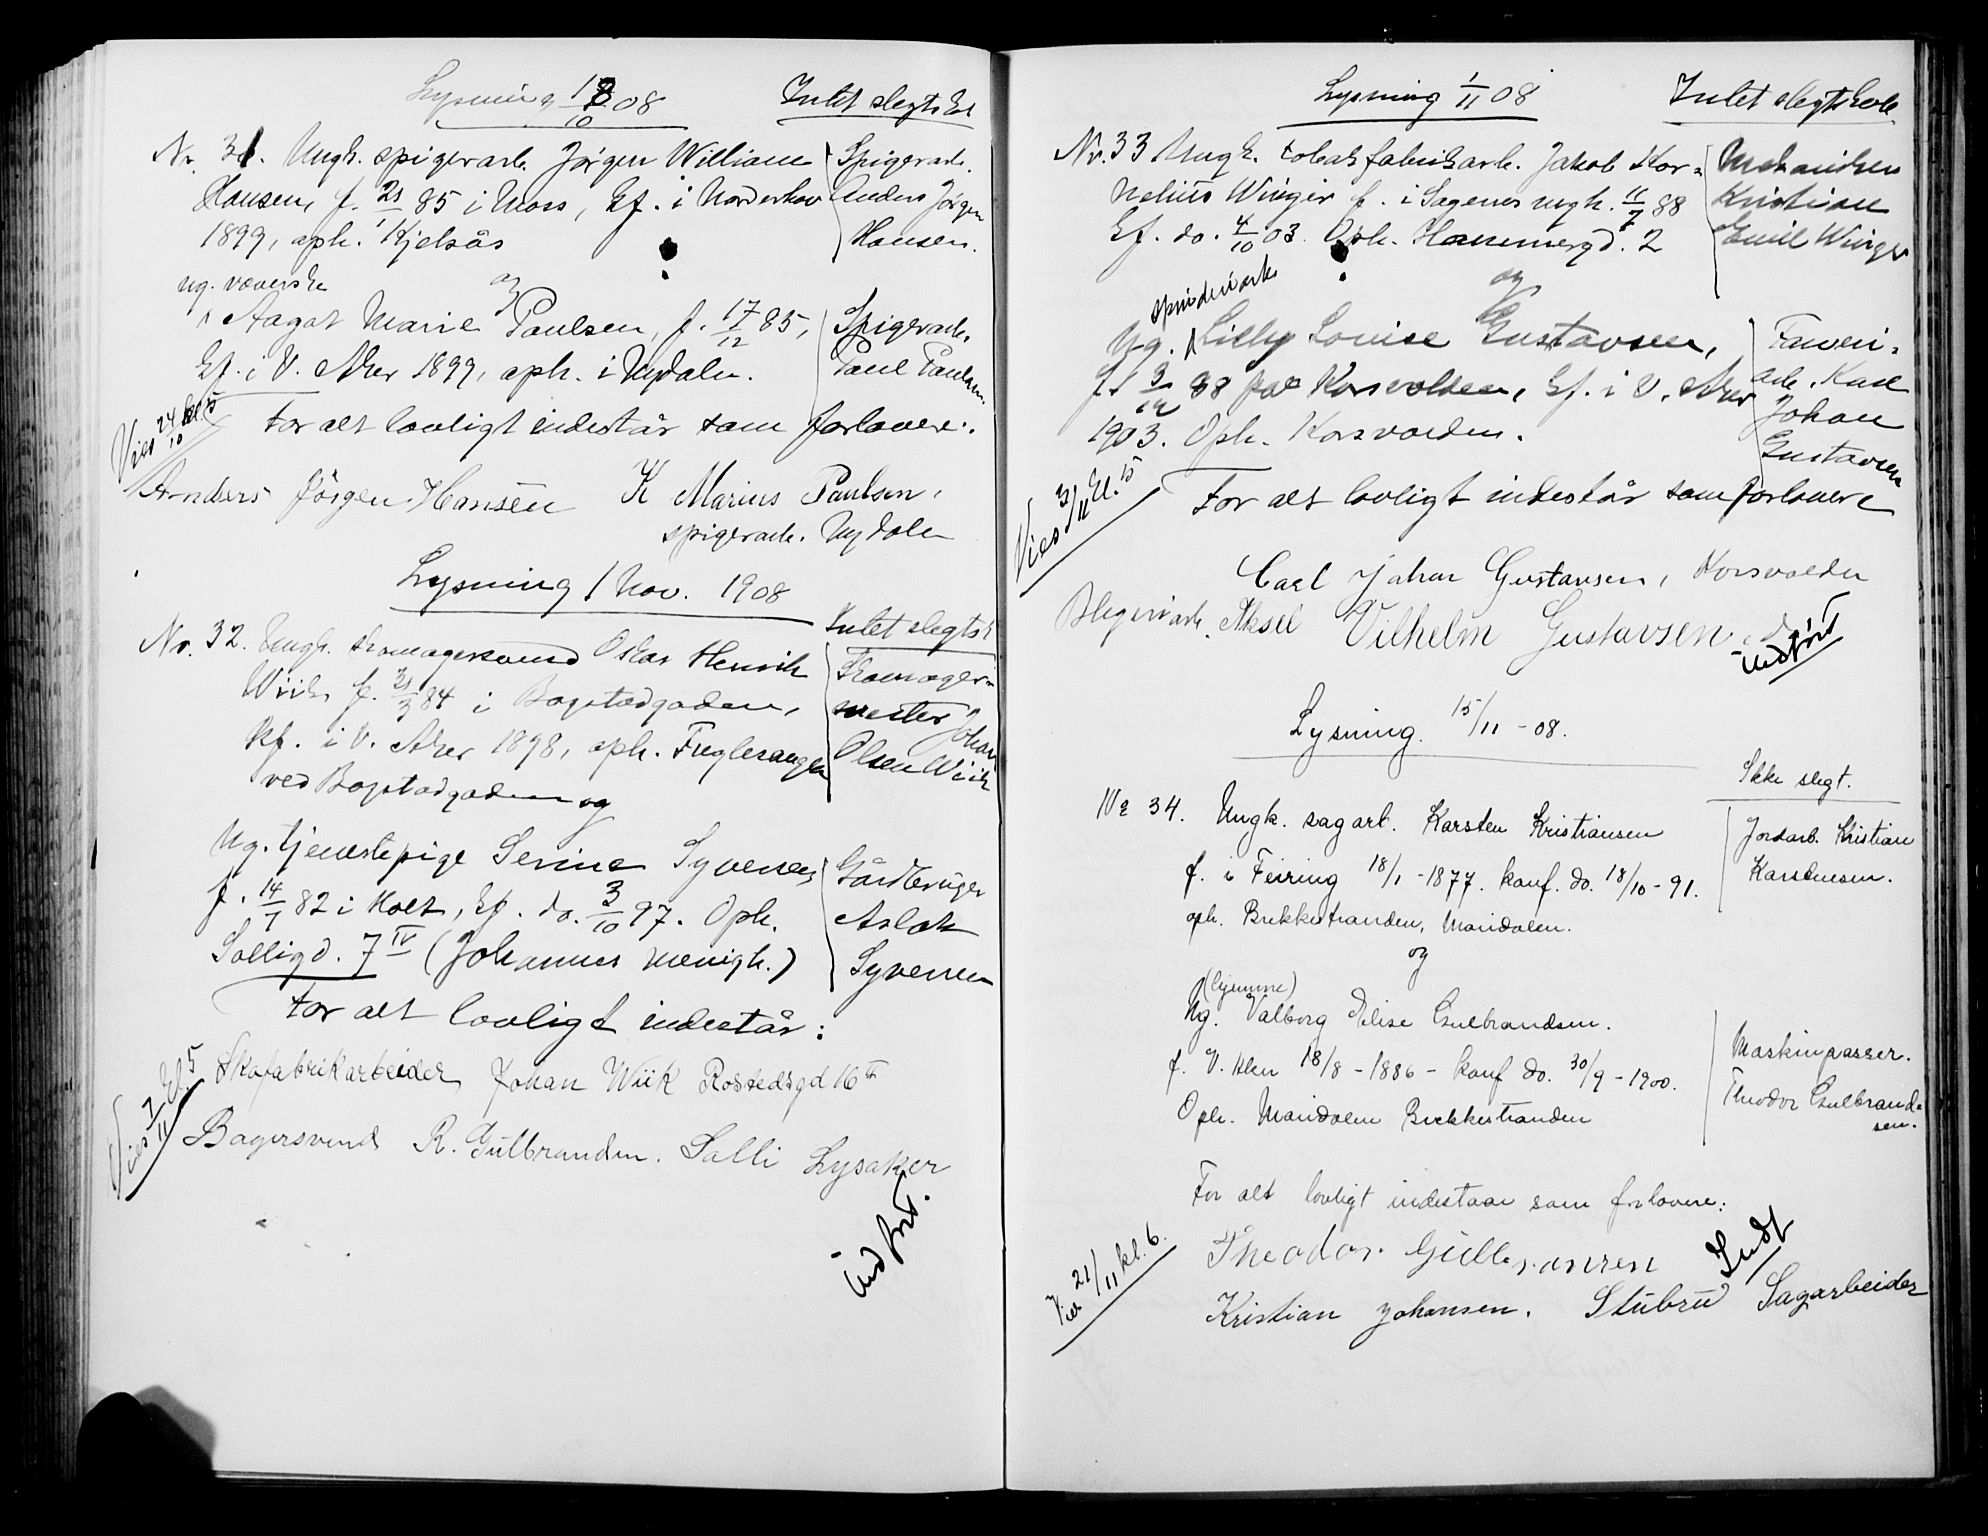 Lysning 18/10 08 Intet slegtsk
Nr. 31. Ungk. spigerarb. Jörgen William
Hansen, f. 85 i Moss, kf. i Norderhov
1899, oph. Kjelsås
Spigerarb.
Anders Jörgen
Hansen.
og
ug. væverske
Aagot Marie Paulsen, f. 17/12 85,
kf. i V. Aker 1899, oph. i Nydalen.
Spigerarb.
Paul Paulsen.
Vies 24/10 kl. 5
For alt lovligt indestår som forlovere:
Anders Jörgen Hansen K Marius Paulsen,
spigerarb. Nydalen
Lysning 1 Nov. 1908
Intet slegtsk
Nr. 32. Ungk. skomagersvend Oskar Henrik
Wiik f. 21/3 84 i Bogstadgaden,
kf. i V. Aker 1898, oph. Fuglesangen
ved Bogstadgaden og
Skomager-
mester Johan
Olsen Wiik
Ug. tjenestepige Serine Syversen
f. 14/7 82 i Holt, kf. do. 3/10 97. Oph.
Solligd. 7 IV (Johannes menigh.)
Gårdbruger
Aslak
Syversen
For alt lovligt indestår:
Vies 7/11 kl. 5
Skofabrikarbeider Johan Wiik Rostedsgd 16
Bagersvend R. Gulbrandsen. Lalli Lysaker
indført.
Lysning 1/11 08 Intet slegtskab
Nr. 33 Ungk. tobaksfabrikarb. Jakob Kor-
nelius Winger f. i Sagenes mgh. 11/7 88
kf. do. 4/10 03. Oph. Hammergd. 2
Mekaniker
Kristian
Emil Winger
og
spinderiarb
Ug. Lilly Louise Gustavsen,
f. 3/12 88 paa Korsvolden, kf. i V. Aker
1903. Oph. Korsvolden.
Farveri-
arb. Karl
Johan
Gustavsen
Vies kl. 5
For alt lovligt indestår som forlovere
Carl Johan Gustavsen, Korsvolden
Blegeriarb. Aksel Vilhelm Gustavsen, do
indført
Lysning. 15/11 - 08.
Ikke slegt.
Nr 34. Ungk. sagarb. Karsten Kristiansen
f. i Feiring 18/1 - 1877. konf. do. 18/10 - 91.
oph. Brekkestranden, Maridalen.
Jordarb. Kristian
Karstensen.
og
(hjemme)
Ug. Valborg Elise Gulbrandsen.
f. V. Aker 18/8 - 1886 - konf do. 30/9 - 1900.
Oph. Maridalen Brekkestranden
Maskinpasser.
Theodor Gulbrand-
sen.
For alt lovligt indestaar som forlovere:
Vies 21/11 kl. 6.
Theodor Gulbransen
Indf
Kristian Johansen. Stubrud Sagarbeider